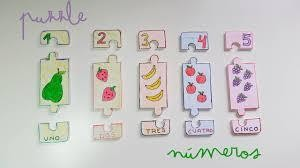 puzzle
1 2 3 4 5
UNO DOS TRES CUATRO CINCO
números